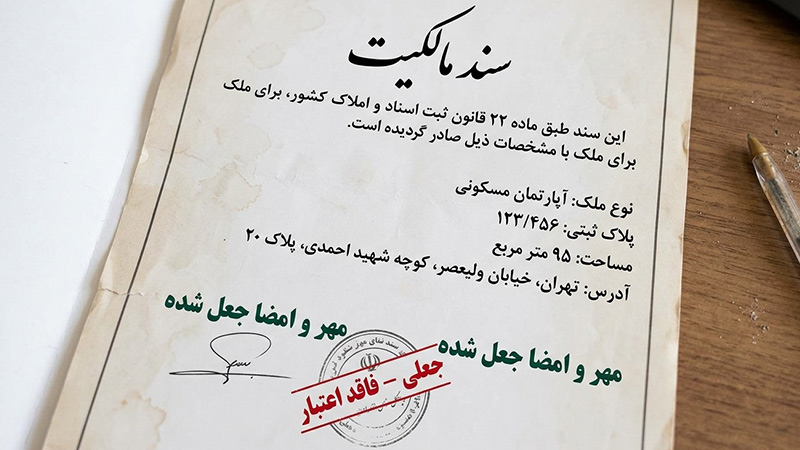 سند مالکیت
این سند طبق ماده ۲۲ قانون ثبت اسناد و املاک کشور، برای ملک
برای ملک با مشخصات ذیل صادر گردیده است.
نوع ملک: آپارتمان مسکونی
پلاک ثبتی: ۱۲۳/۴۵۶
مساحت: ۹۵ متر مربع
آدرس: تهران، خیابان ولیعصر، کوچه شهید احمدی، پلاک ۲۰
مهر و امضا جعل شده
مهر و امضا جعل شده
جعلی - فاقد اعتبار